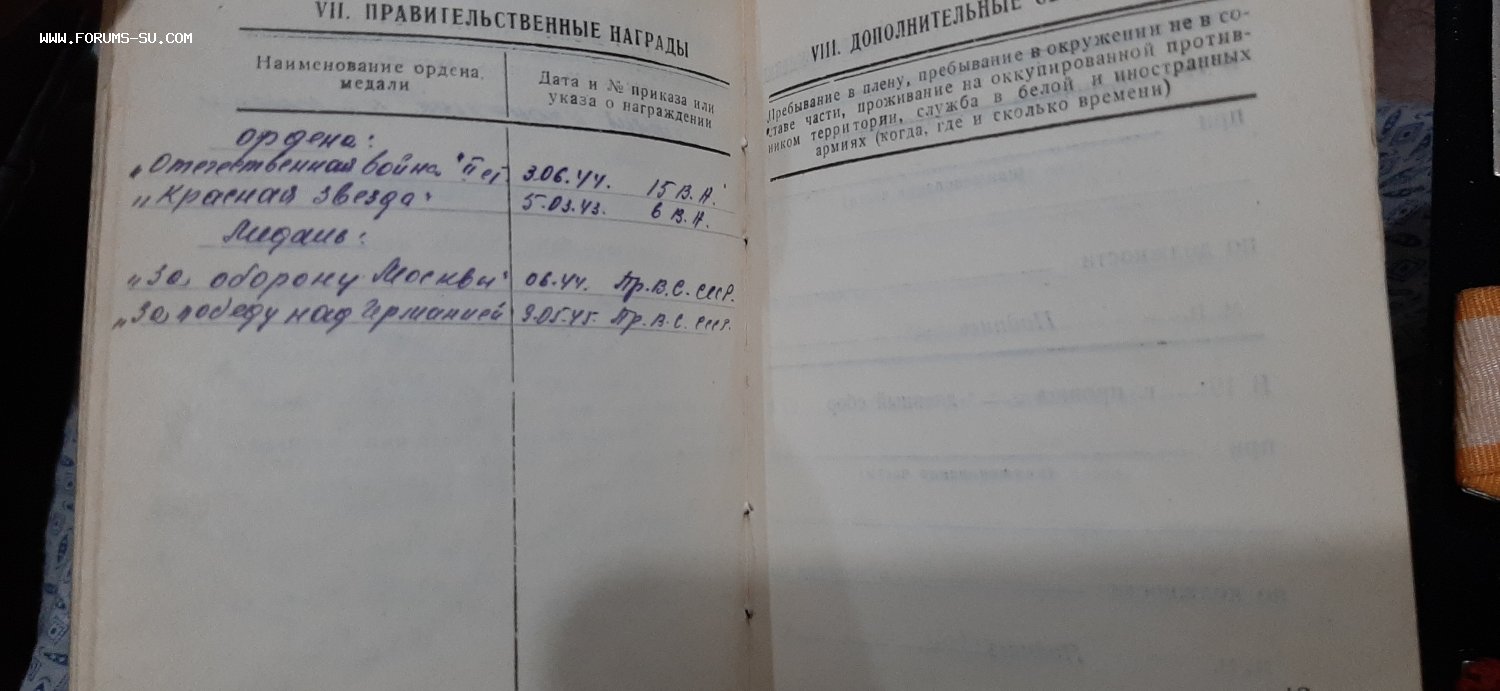 WWW.FORUMS-SU.COM
VII. ПРАВИТЕЛЬСТВЕННЫЕ НАГРАДЫ
Наименование ордена, медали
Дата и № приказа или указа о награждении
ордена:
„Отечественная война" II ст. 3.06.44. 15 В.А.
„Красная Звезда" 5.03.43. 6 В.А.
Медаль:
„За оборону Москвы" 06.44. Пр.В.С. СССР.
„За победу над Германией" 9.05.45. Пр.В.С. СССР.
VIII. ДОПОЛНИТЕЛЬНЫЕ
Пребывание в плену, пребывание в окружении не в со-
ставе части, проживание на оккупированной против-
ником территории, служба в белой и иностранных
армиях (когда, где и сколько времени)